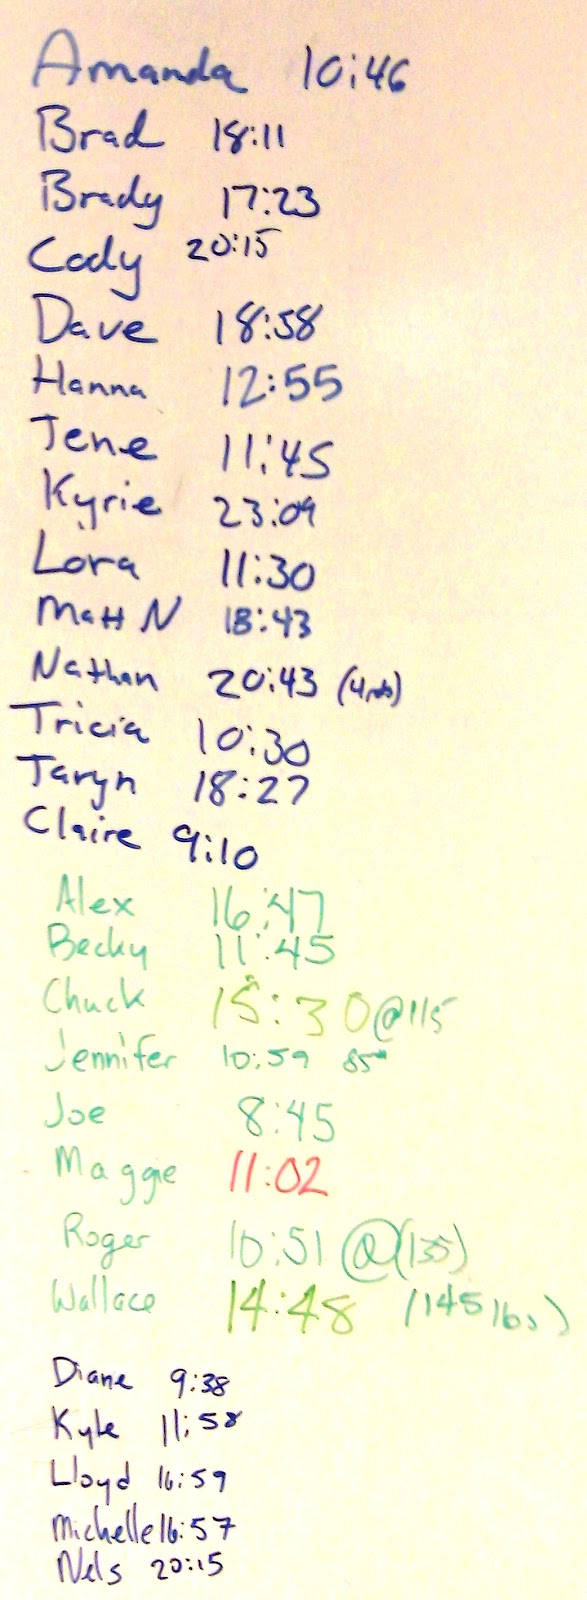 Amanda 10:46
Brad 18:11
Brady 17:23
Cody 20:15
Dave 18:58
Hanna 12:55
Jene 11:45
Kyrie 23:09
Lora 11:30
Matt N 18:43
Nathan 20:43 (4rds)
Tricia 10:30
Taryn 18:27
Claire 9:10
Alex 16:47
Becky 11:45
Chuck 15:30 @115
Jennifer 10:59 85#
Joe 8:45
Maggie 11:02
Roger 10:51 @(135)
Wallace 14:48 (145 lbs)
Diane 9:38
Kyle 11:58
Lloyd 16:59
Michelle 16:57
Nels 20:15